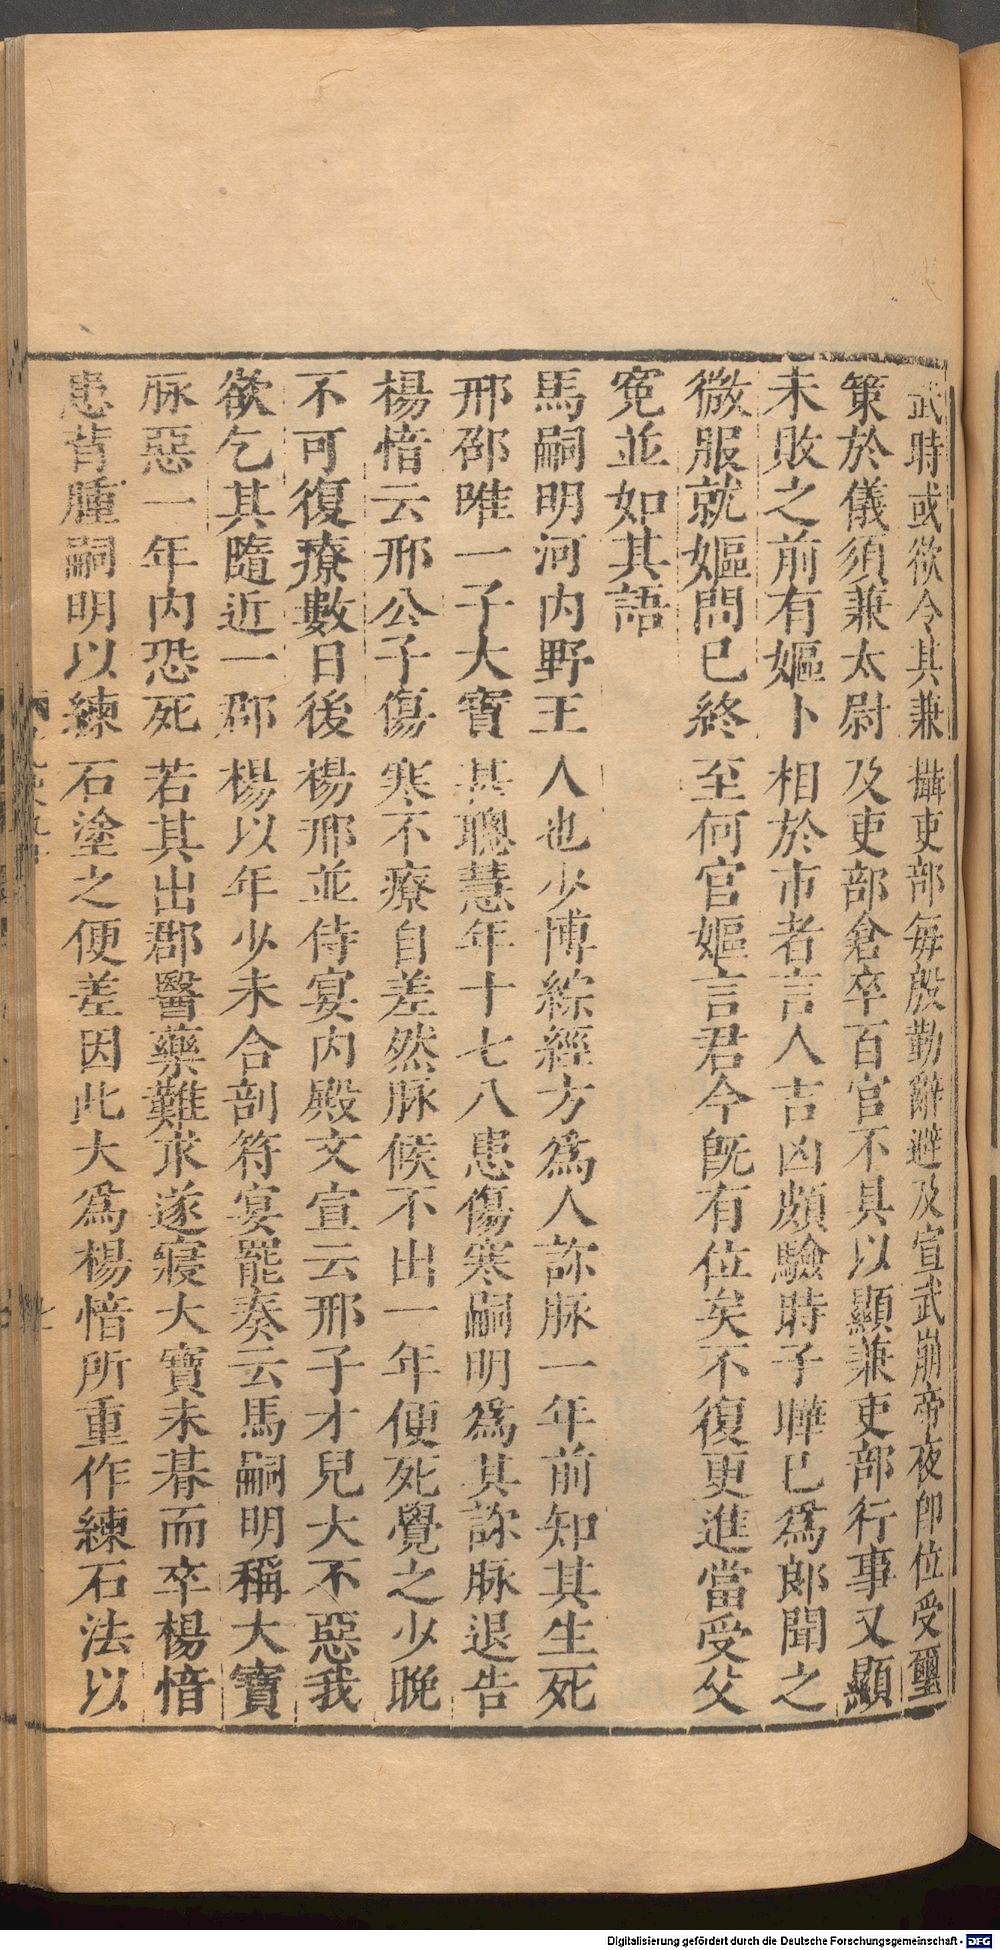 武時或欲令其兼攝吏部每殷勤辭避及宣武崩帝夜即位受璽
策於儀須兼太尉及吏部倉卒百官不具以顯兼吏部行事又顯
未敗之前有嫗卜相於市者言人吉凶頗驗時子曄已爲郎聞之
微服就嫗問己終至何官嫗言君今旣有位矣不復更進當受父
寃並如其語
馬嗣明河内野王人也少博綜經方爲人診脉一年前知其生死
邢邵唯一子大寶甚聰慧年十七八患傷寒嗣明爲其診脉退告
楊愔云邢公子傷寒不療自差然脉候不出一年便死覺之少晚
不可復療數日後楊邢並侍宴内殿文宣云邢子才兒大不惡我
欲乞其隨近一郡楊以年少未合剖符宴罷奏云馬嗣明稱大寶
脉惡一年内恐死若其出郡醫藥難求遂寢大寶未朞而卒楊愔
患背腫嗣明以練石塗之便差因此大爲楊愔所重作練石法以
Digitalisierung gefördert durch die Deutsche Forschungsgemeinschaft - DFG